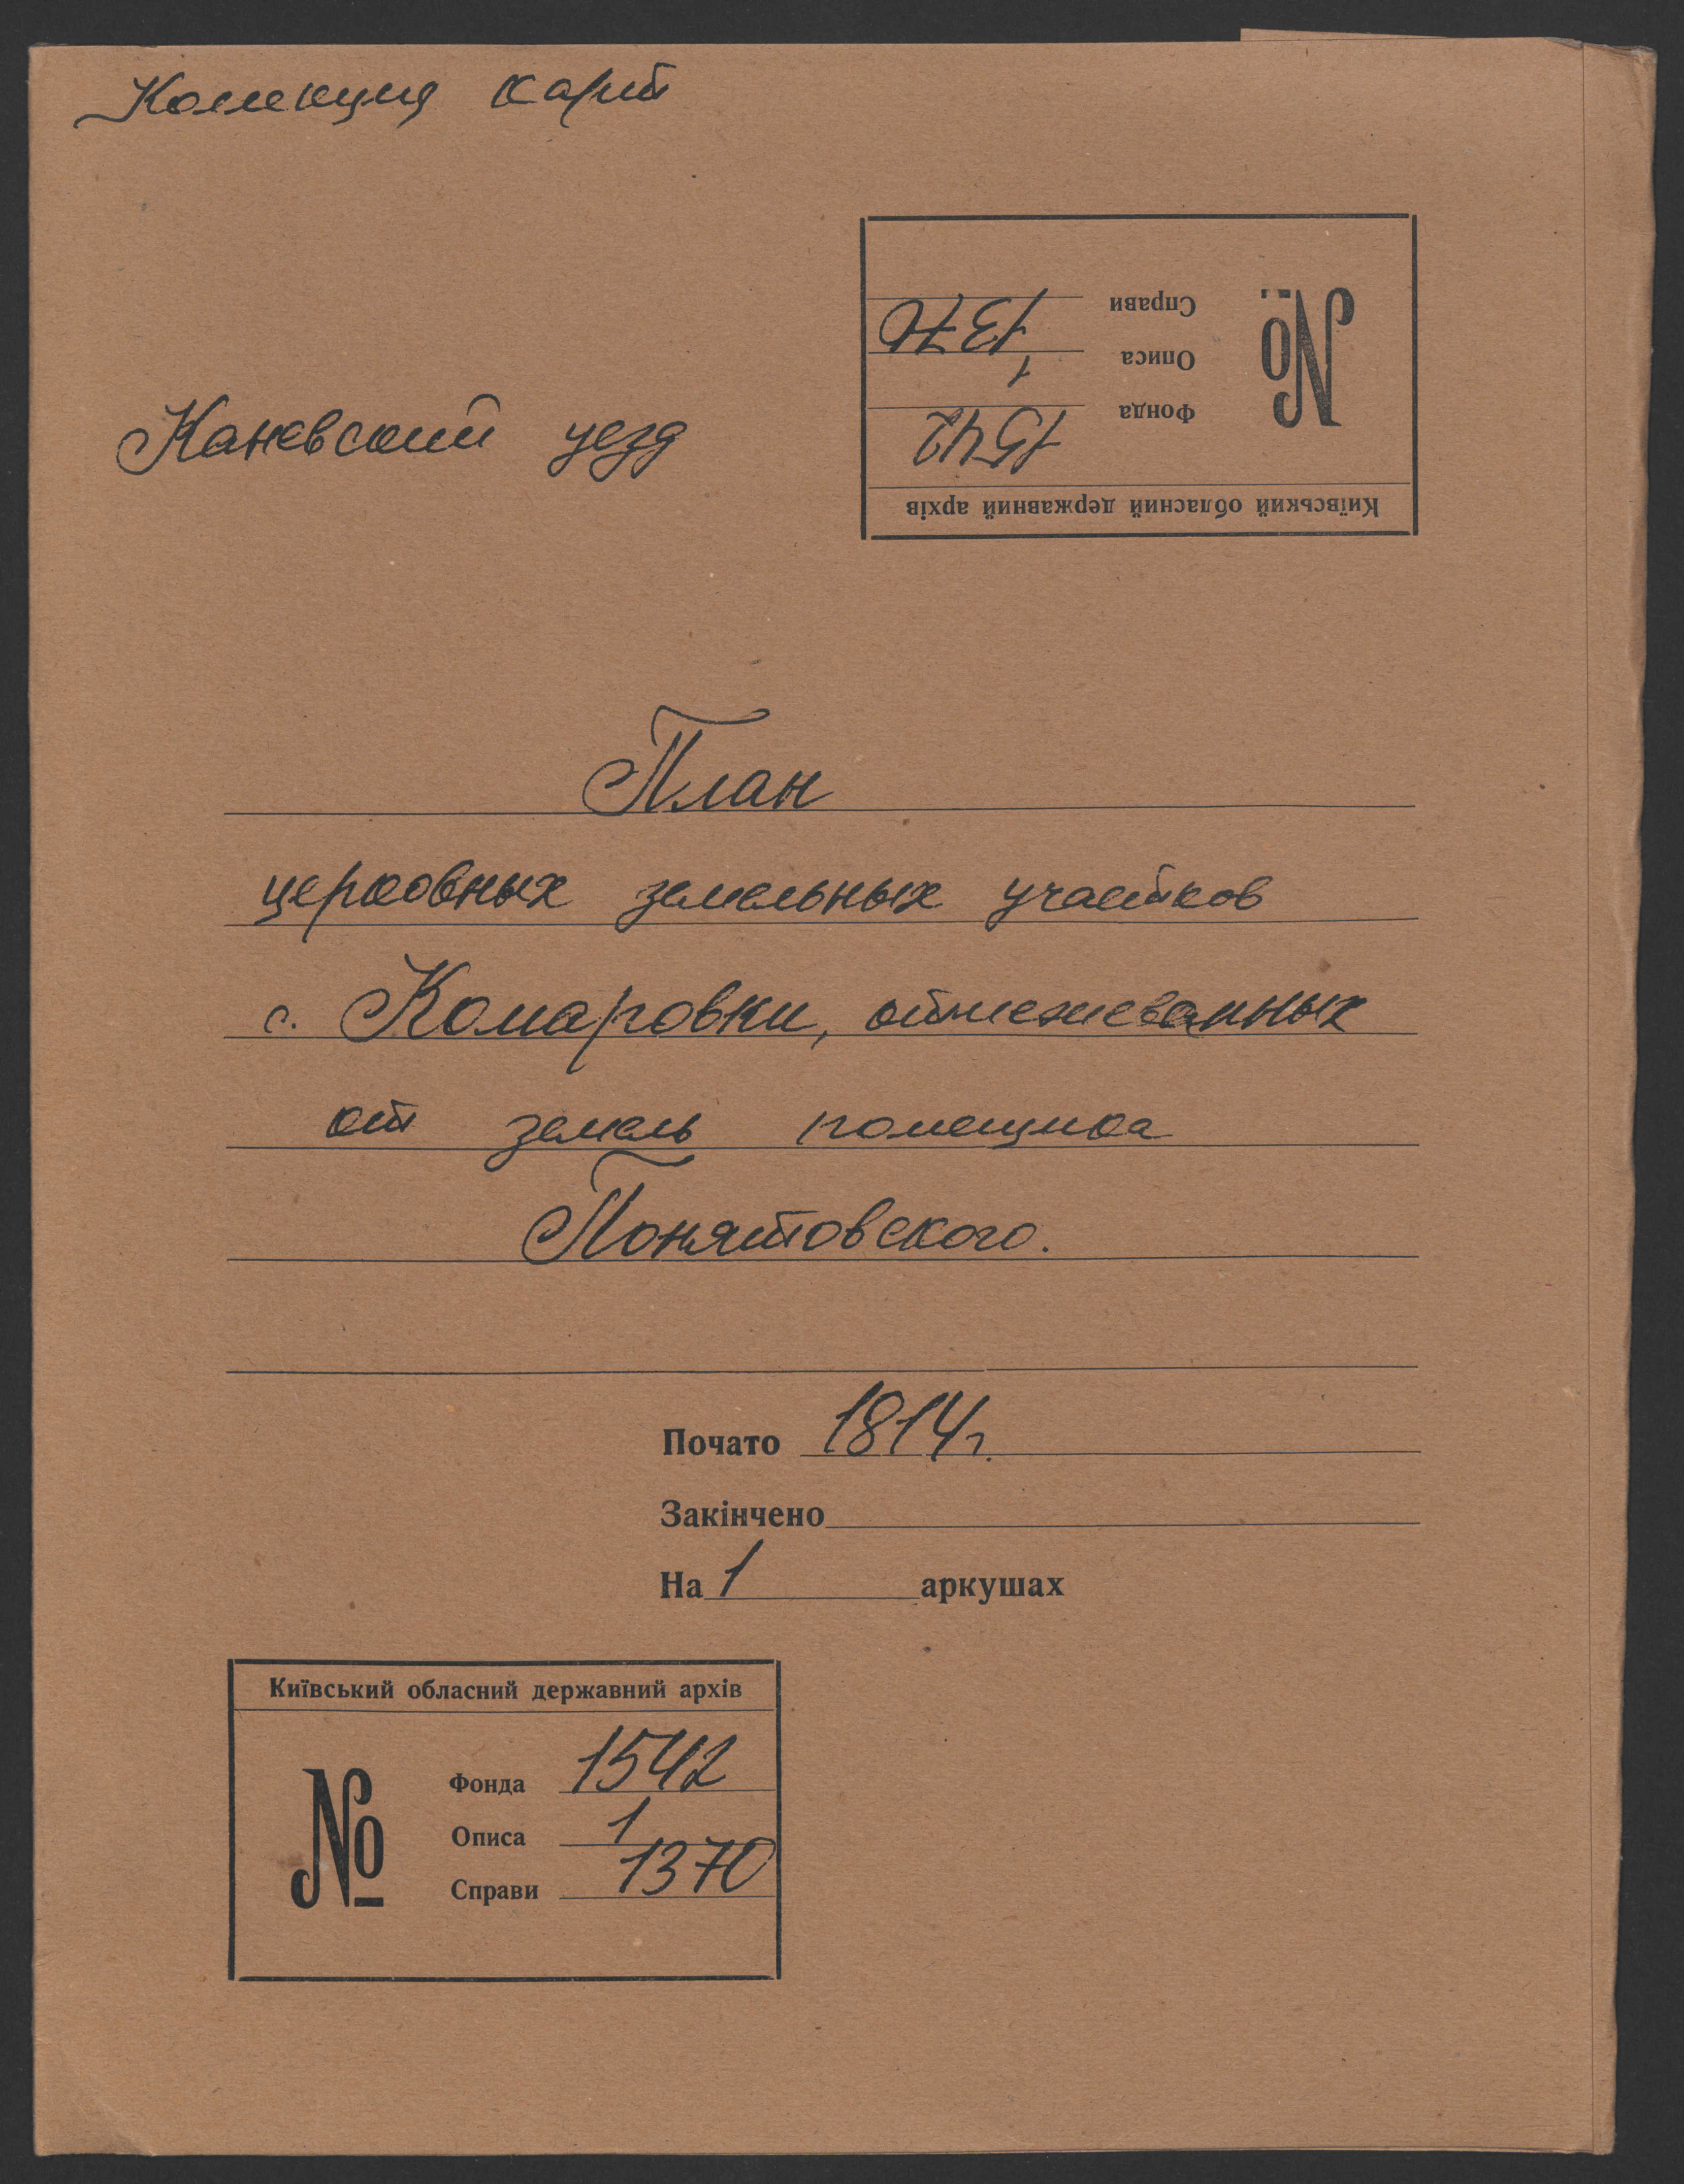 Колекция карт
Киïвський обласний державний архiв
№
Фонда 1542
Описа 1
Справи 1370
Каневский уезд
План
церковных земельных участков
с. Комаровки, отмежеванных
от земель помещика
Понятовского.
Почато 1814г.
Закінчено
На 1 аркушах
Київський обласний державний архів
№
Фонда 1542
Описа 1
Справи 1370